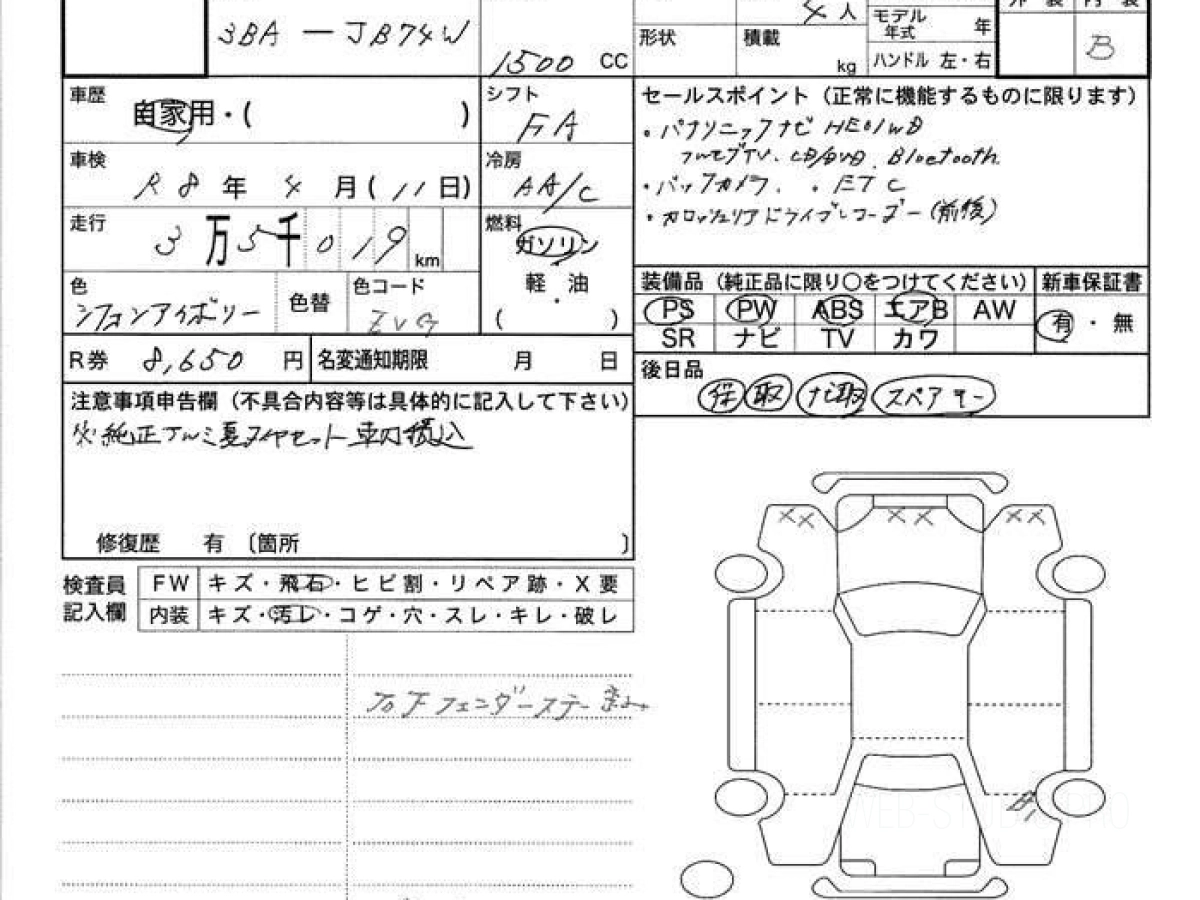 3BA － JB74W
1500 CC
4 人
形状
積載
kg
モデル年式 年
ハンドル 左・右
外 装 内 装
B
車歴 自家用・( )
シフト FA
車検 R 8 年 4 月 ( 11 日)
冷房 AA/C
走行 3 万 5 千 0 1 9 km
燃料 ガソリン・軽油 ( )
色 シフォンアイボリー
色替
色コード ZVG
R券 8,650 円
名変通知期限 月 日
セールスポイント (正常に機能するものに限ります)
・パナソニックナビ HE01WD
フルセブTV. CD/DVD. Bluetooth
・バックカメラ. ・ETC
・カロッツェリアドライブレコーダー(前後)
装備品 (純正品に限り○をつけてください)
新車保証書
PS PW ABS エアB AW
有・無
SR ナビ TV カワ
後日品
保 取 ナビ取 スペアキー
注意事項申告欄 (不具合内容等は具体的に記入して下さい)
※純正アルミ夏タイヤセット 車内積込
修復歴 有 〔箇所 〕
検査員記入欄
FW キズ・飛石・ヒビ割・リペア跡・X要
内装 キズ・汚レ・コゲ・穴・スレ・キレ・破レ
フェンダーステー 歪み
XX XX XX
WEB-STUDIO.PRO